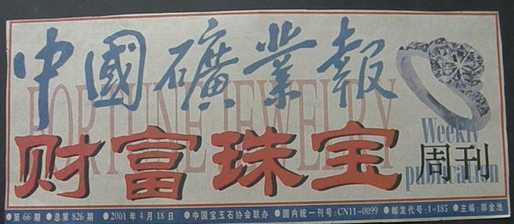 中國礦業報
FORTUNE JEWELRY
财富珠宝
Weekly
周刊
publication
●第66期 ●总第826期 ●2001年4月18日 ●中国宝玉石协会联办 ●国内统一刊号:CN11-0099 ●邮发代号:1-185 ●主编:郭金池